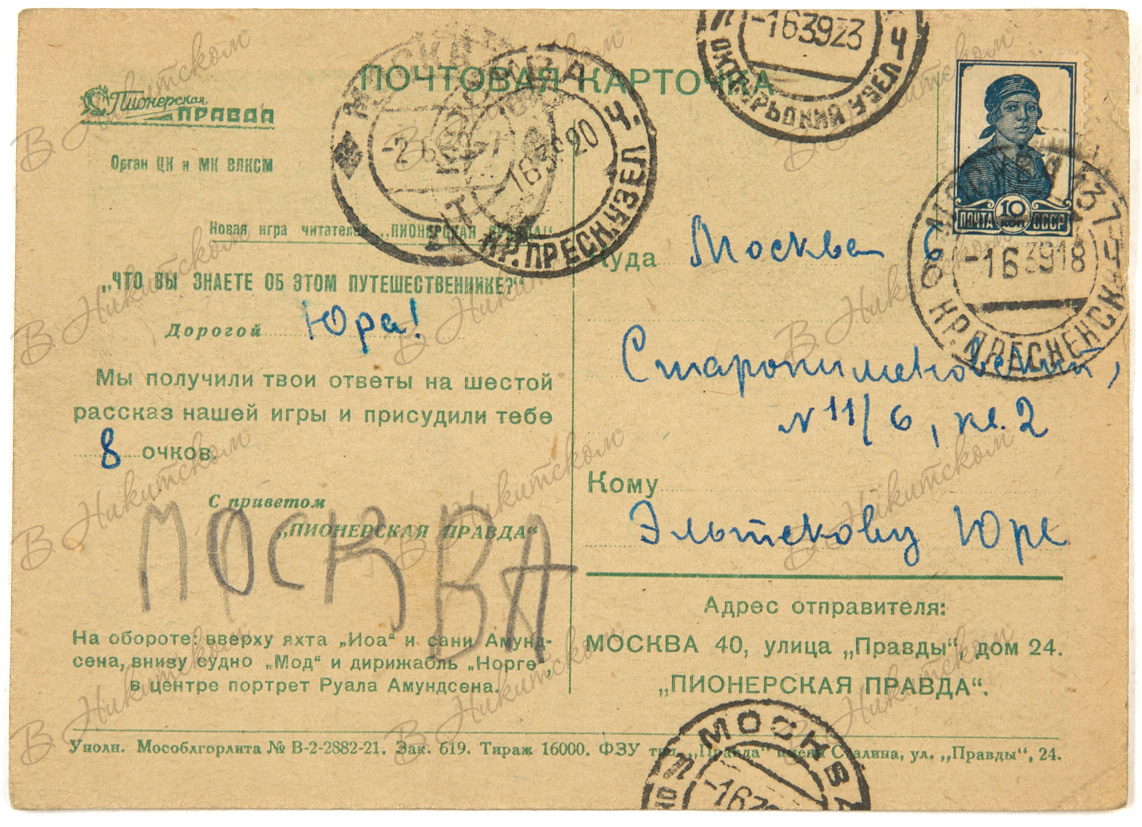 ПОЧТОВАЯ КАРТОЧКА
Пионерская
ПРАВДА
Орган ЦК и МК ВЛКСМ
Новая игра читателей „ПИОНЕРСКАЯ ПРАВДА"
„ЧТО ВЫ ЗНАЕТЕ ОБ ЭТОМ ПУТЕШЕСТВЕННИКЕ?"
Дорогой Юра!
Мы получили твои ответы на шестой
рассказ нашей игры и присудили тебе
8 очков.
С приветом
„ПИОНЕРСКАЯ ПРАВДА"
МОСКВА
На обороте: вверху яхта „Иоа" и сани Амунд-
сена, внизу судно „Мод" и дирижабль „Норге",
в центре портрет Руала Амундсена.
Куда Москва 6
Старопименовский,
№ 11/6, кв. 2
Кому
Эльтекову Юре
Адрес отправителя:
МОСКВА 40, улица „Правды", дом 24.
„ПИОНЕРСКАЯ ПРАВДА".
Уполн. Мособлгорлита № В-2-2882-21. Зак. 619. Тираж 16000. ФЗУ тип. „Правда" имени Сталина, ул. „Правды", 24.
ПОЧТА 10 КОП СССР
МОСКВА
КР. ПРЕСН. УЗЕЛ
163920
-1639 23
ОКТЯБРЬСКИЙ УЗЕЛ
МОСКВА 137
-163918
КР. ПРЕСНЕНСК
МОСКВА
-1639
В Никитском